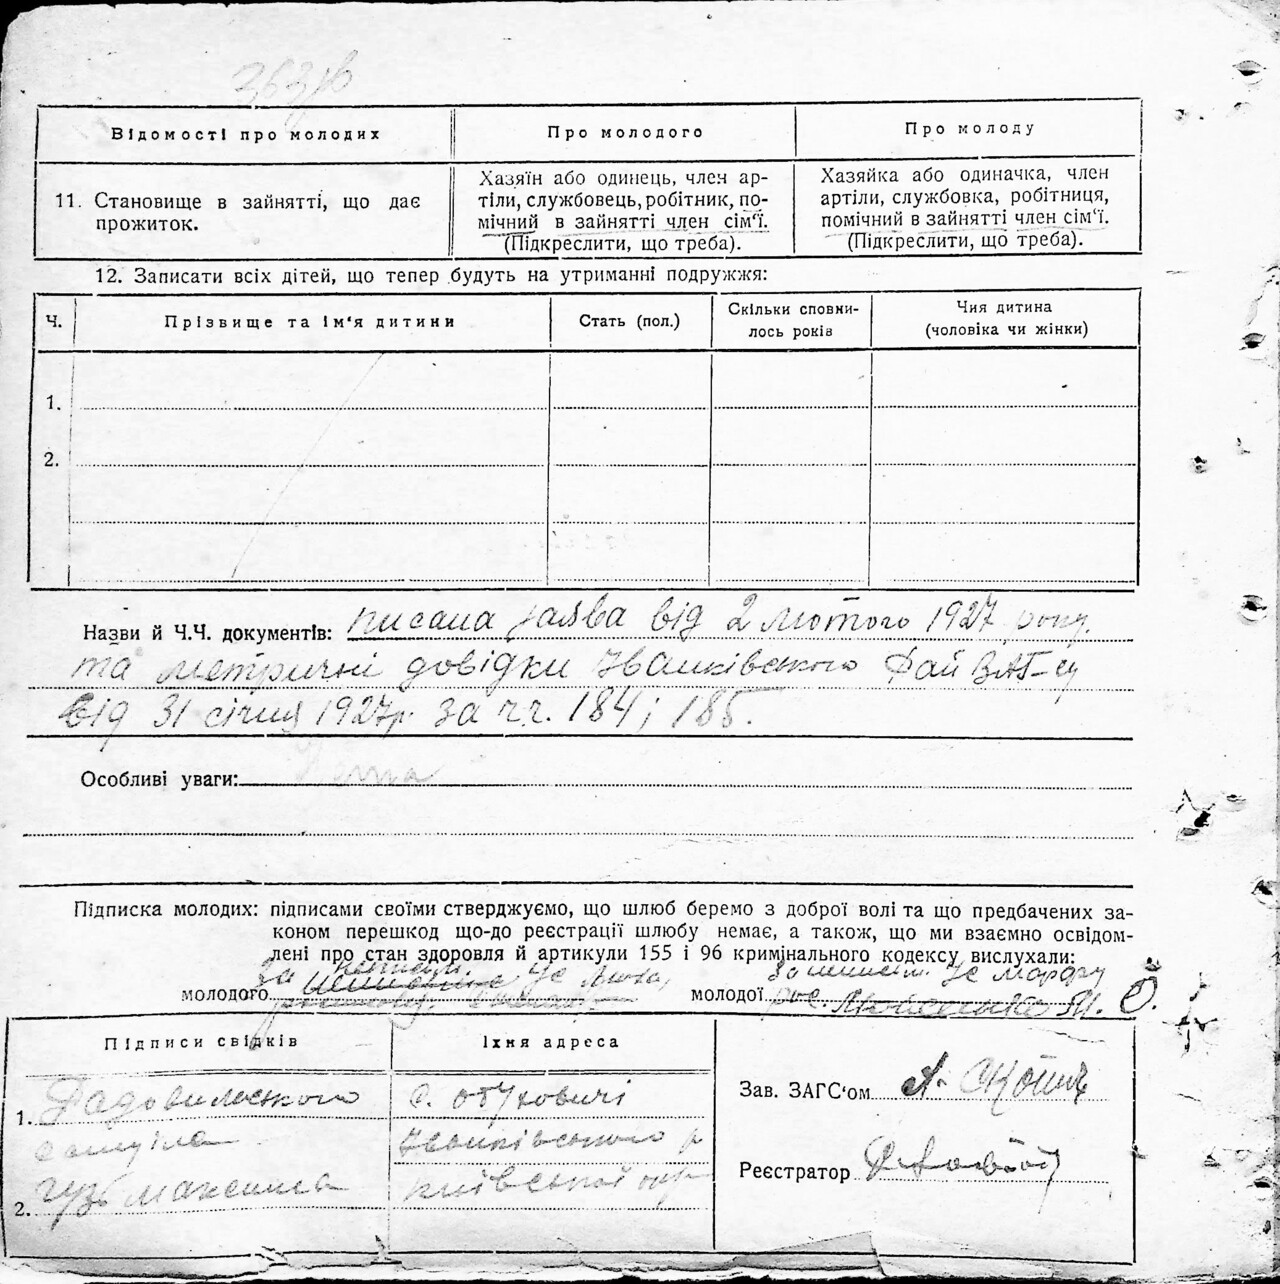 Відомості про молодих
Про молодого
Про молоду
11. Становище в зайнятті, що дає
прожиток.
Хазяїн або одинець, член ар-
тіли, службовець, робітник, по-
мічний в зайнятті член сім'ї.
(Підкреслити, що треба).
Хазяйка або одиначка, член
артіли, службовка, робітниця,
помічний в зайнятті член сім'ї.
(Підкреслити, що треба).
12. Записати всіх дітей, що тепер будуть на утриманні подружжя:
Ч.
Прізвище та ім'я дитини
Стать (пол.)
Скільки сповни-
лось років
Чия дитина
(чоловіка чи жінки)
1.
2.
Назви й Ч.Ч. документів: писана заява від 2 лютого 1927 року.
та метричні довідки Іванківського РайЗАГ-су
від 31 січня 1927р. за ч.ч. 184 і 185.
Особливі уваги: Нема
Підписка молодих: підписами своїми стверджуємо, що шлюб беремо з доброї волі та що предбачених за-
коном перешкод що-до реєстрації шлюбу немає, а також, що ми взаємно освідом-
лені про стан здоровля й артикули 155 і 96 кримінального кодексу вислухали:
молодого за
молодої
Підписи свідків
Їхня адреса
1. Радовильского
с. Обуховичі
Самуіла
Іванківського р
2. Гузь Максима
Київської окр
Зав. ЗАГС'ом А.
Реєстратор